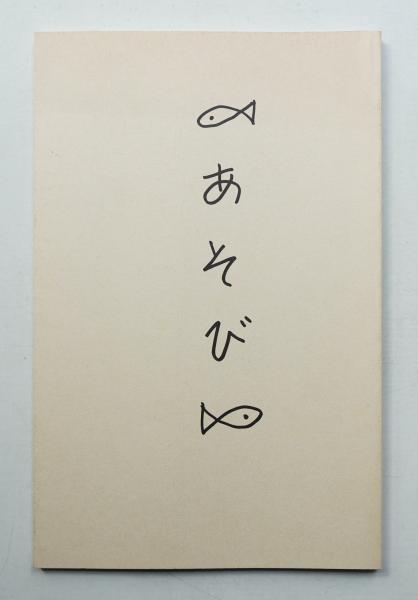 あそび